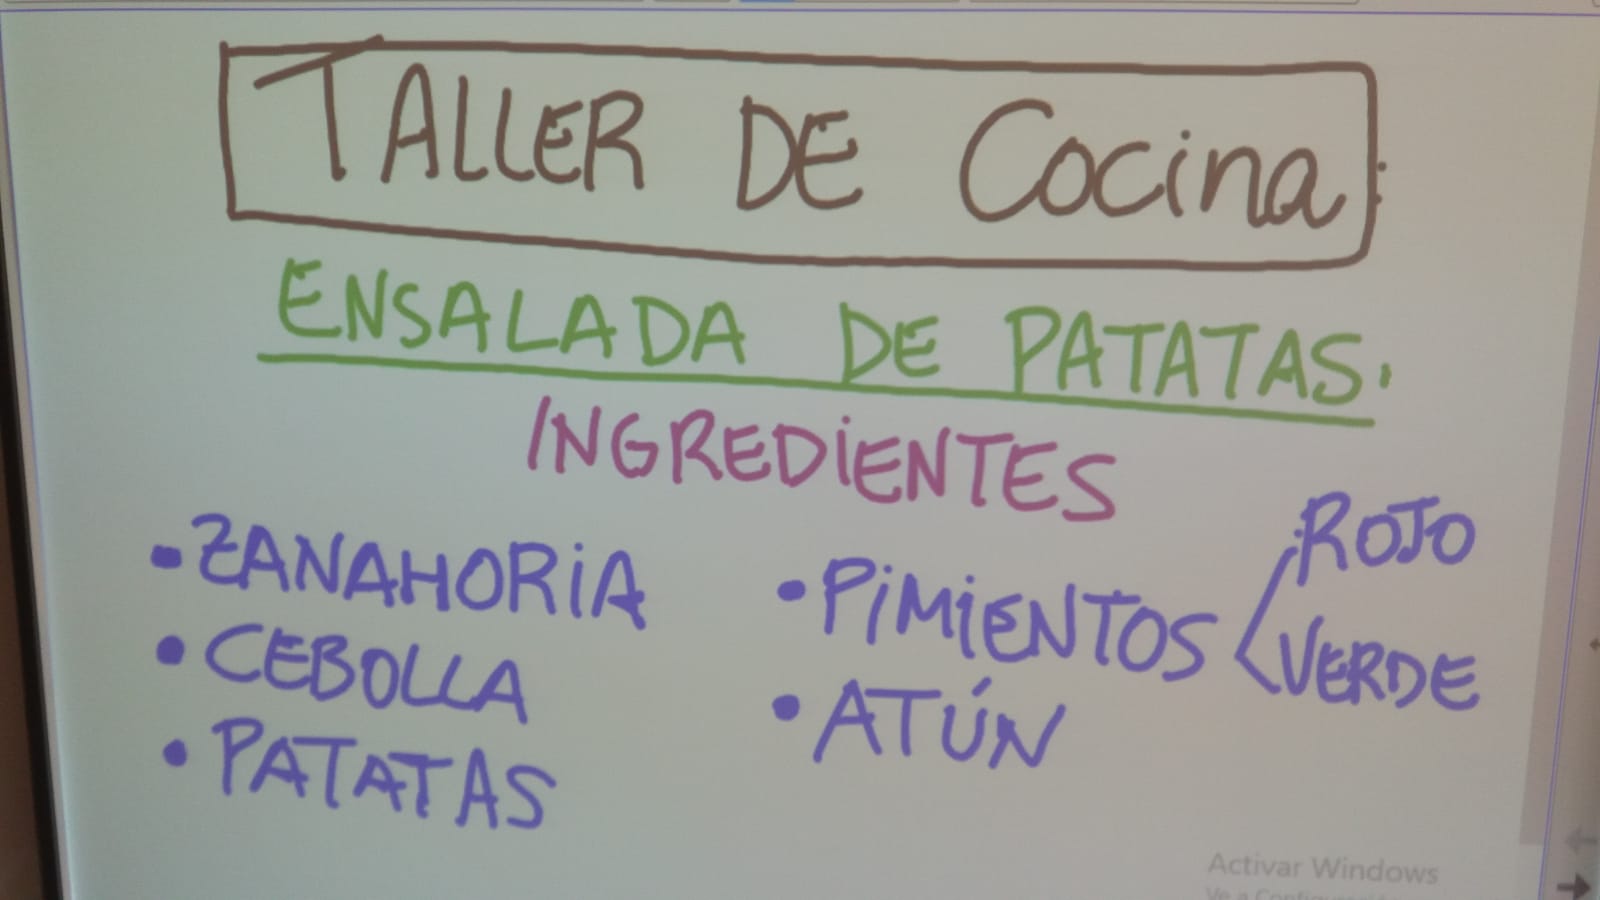 TALLER DE Cocina:
ENSALADA DE PATATAS.
INGREDIENTES
• ZANAHORIA
• CEBOLLA
• PATATAS
• PIMIENTOS < ROJO
VERDE
• ATÚN
Activar Windows